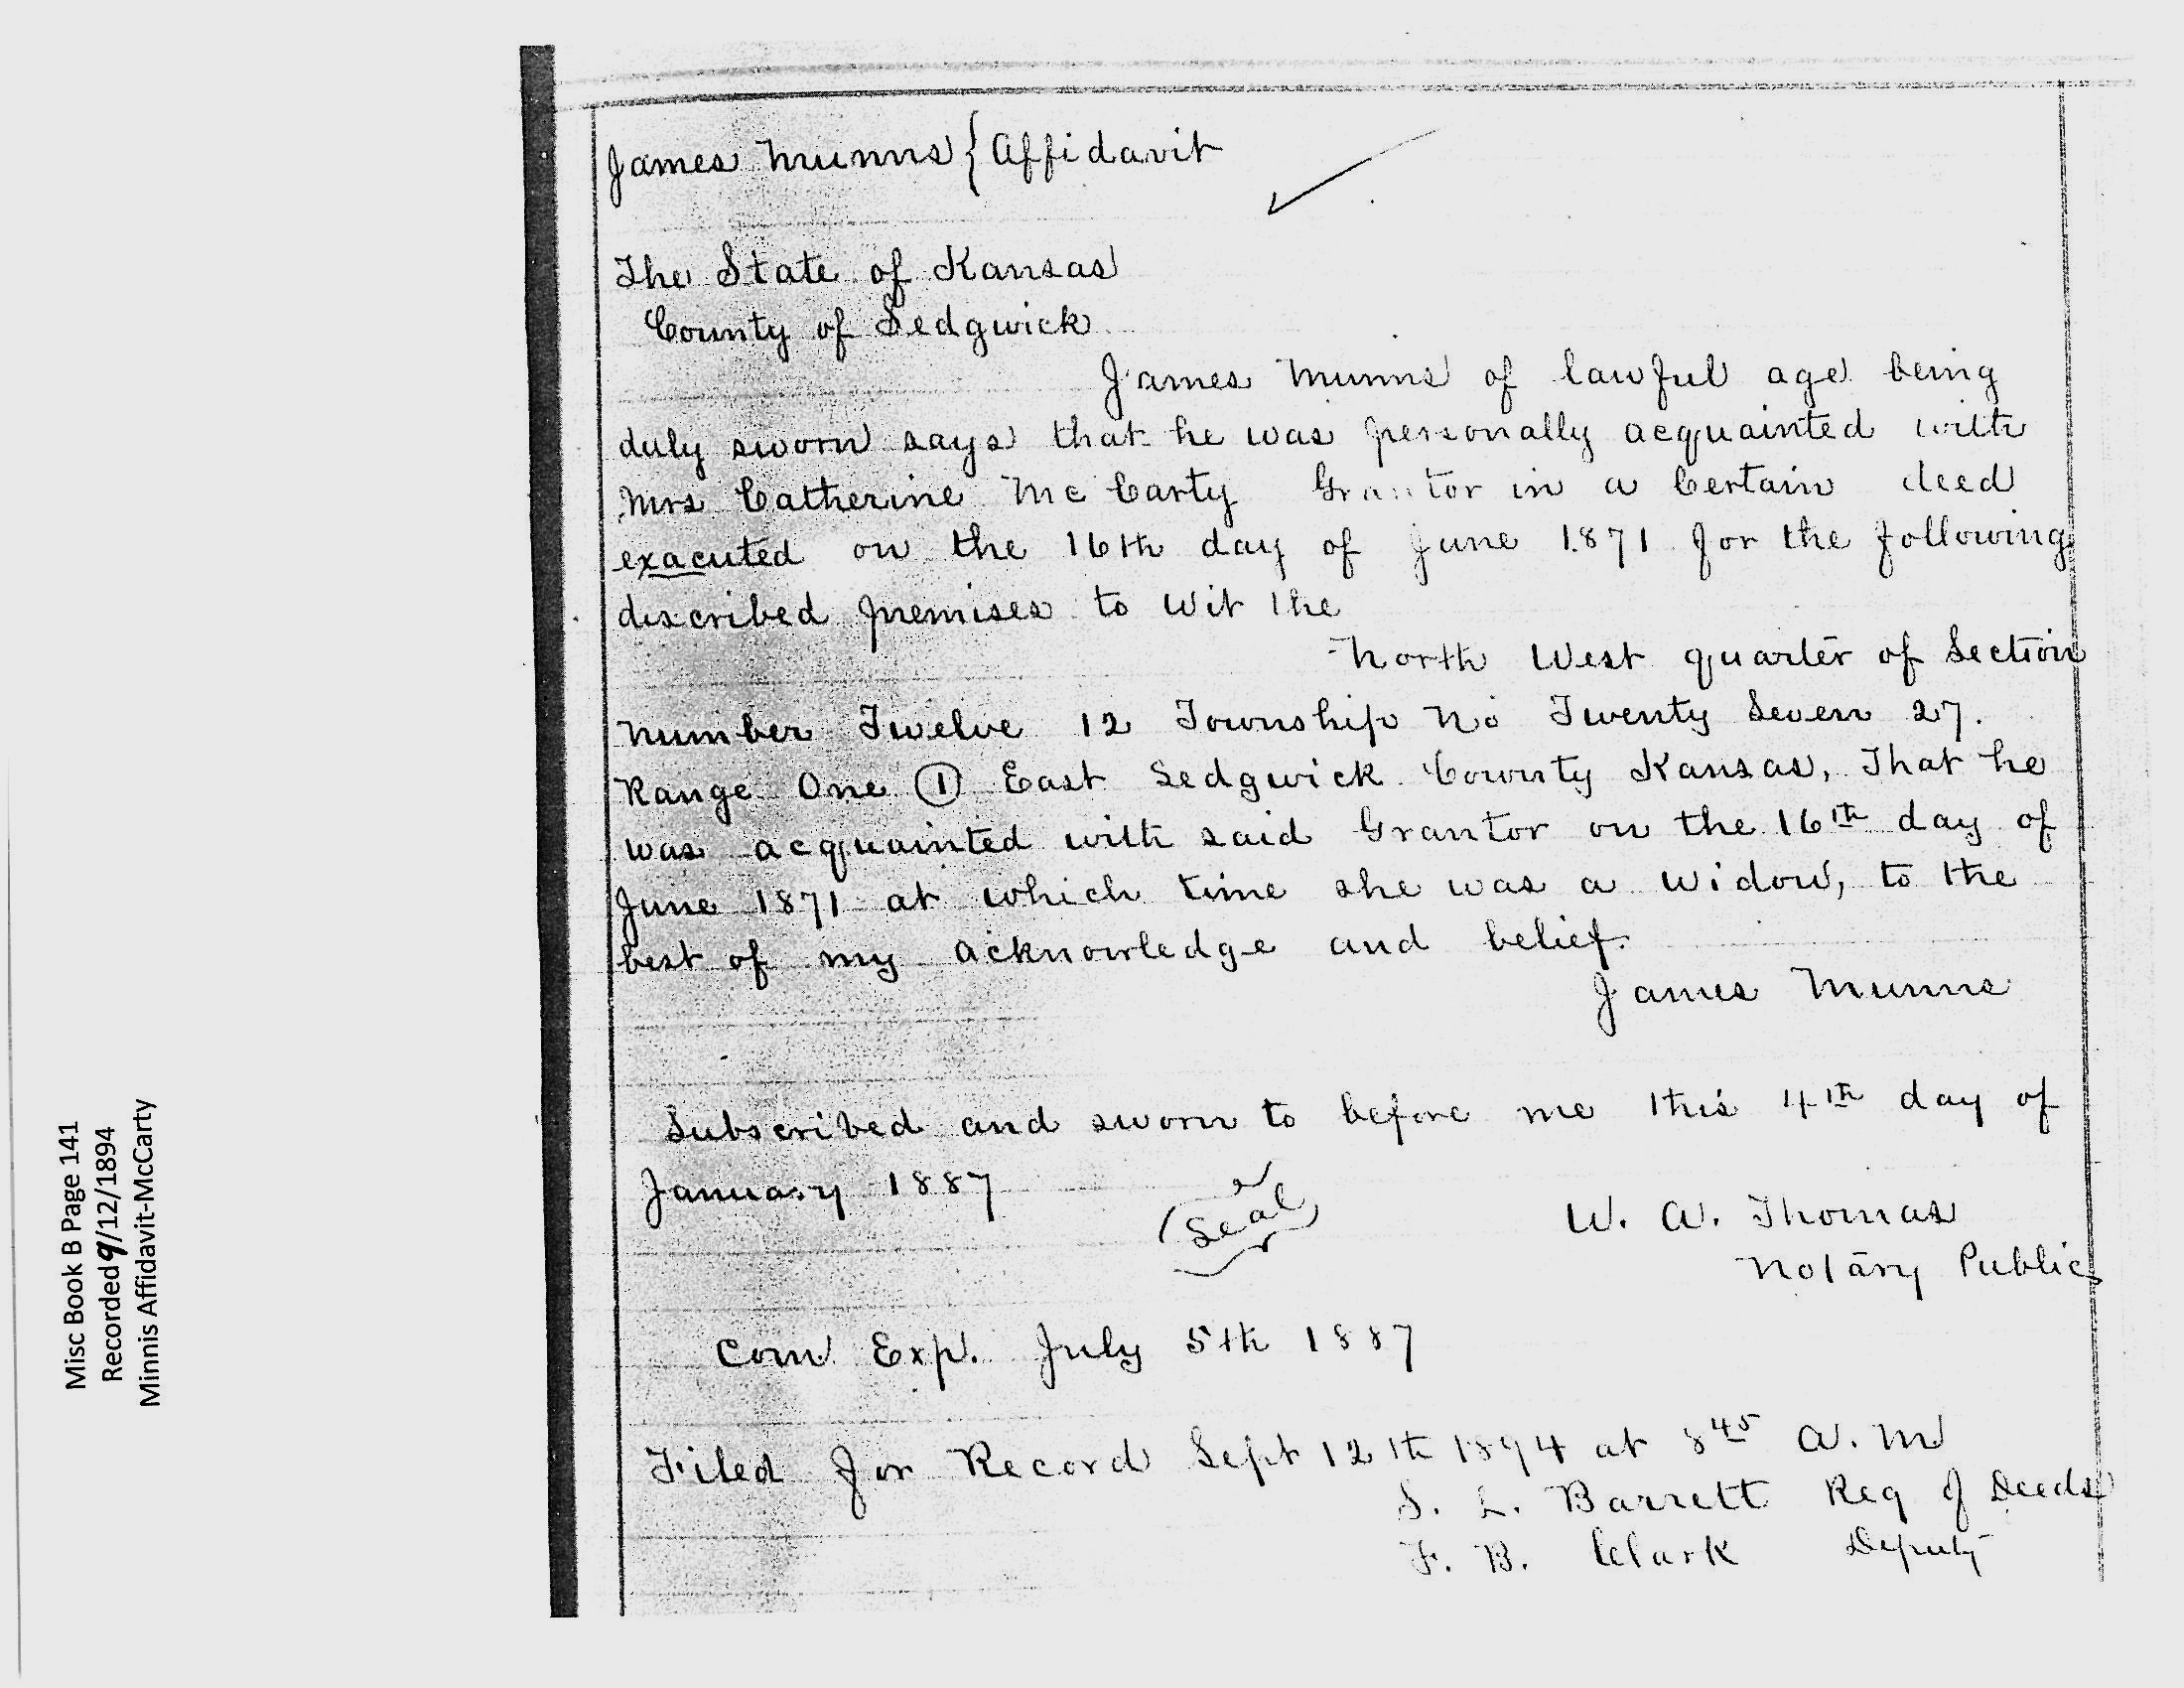 James Munns { Affidavit
The State of Kansas
County of Sedgwick
James Munns of lawful age being
duly sworn says that he was personally acquainted with
Mrs Catherine Mc Carty Grantor in a Certain deed
exacuted on the 16th day of June 1871 for the following
discribed premises to Wit the
North West quarter of Section
Number Twelve 12 Township No Twenty Seven 27.
Range One 1 East Sedgwick County Kansas, That he
was acquainted with said Grantor on the 16th day of
June 1871 at which time she was a widow, to the
best of my acknowledge and belief.
James Munns
Subscribed and sworn to before me this 4th day of
January 1887
(Seal)
W. A. Thomas
Notary Public
Com Exp. July 5th 1887
Filed for Record Sept 12th 1894 at 8 45 A. M
S. L. Barrett Reg of Deeds
F. B. Clark Deputy
Misc Book B Page 141
Recorded 9/12/1894
Minnis Affidavit-McCarty